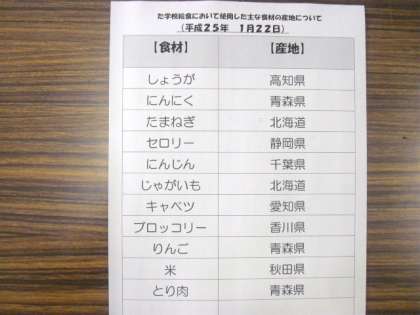 た学校給食において使用した主な食材の産地について
（平成２５年　１月２２日）
【食材】　【産地】
しょうが　高知県
にんにく　青森県
たまねぎ　北海道
セロリー　静岡県
にんじん　千葉県
じゃがいも　北海道
キャベツ　愛知県
ブロッコリー　香川県
りんご　青森県
米　秋田県
とり肉　青森県